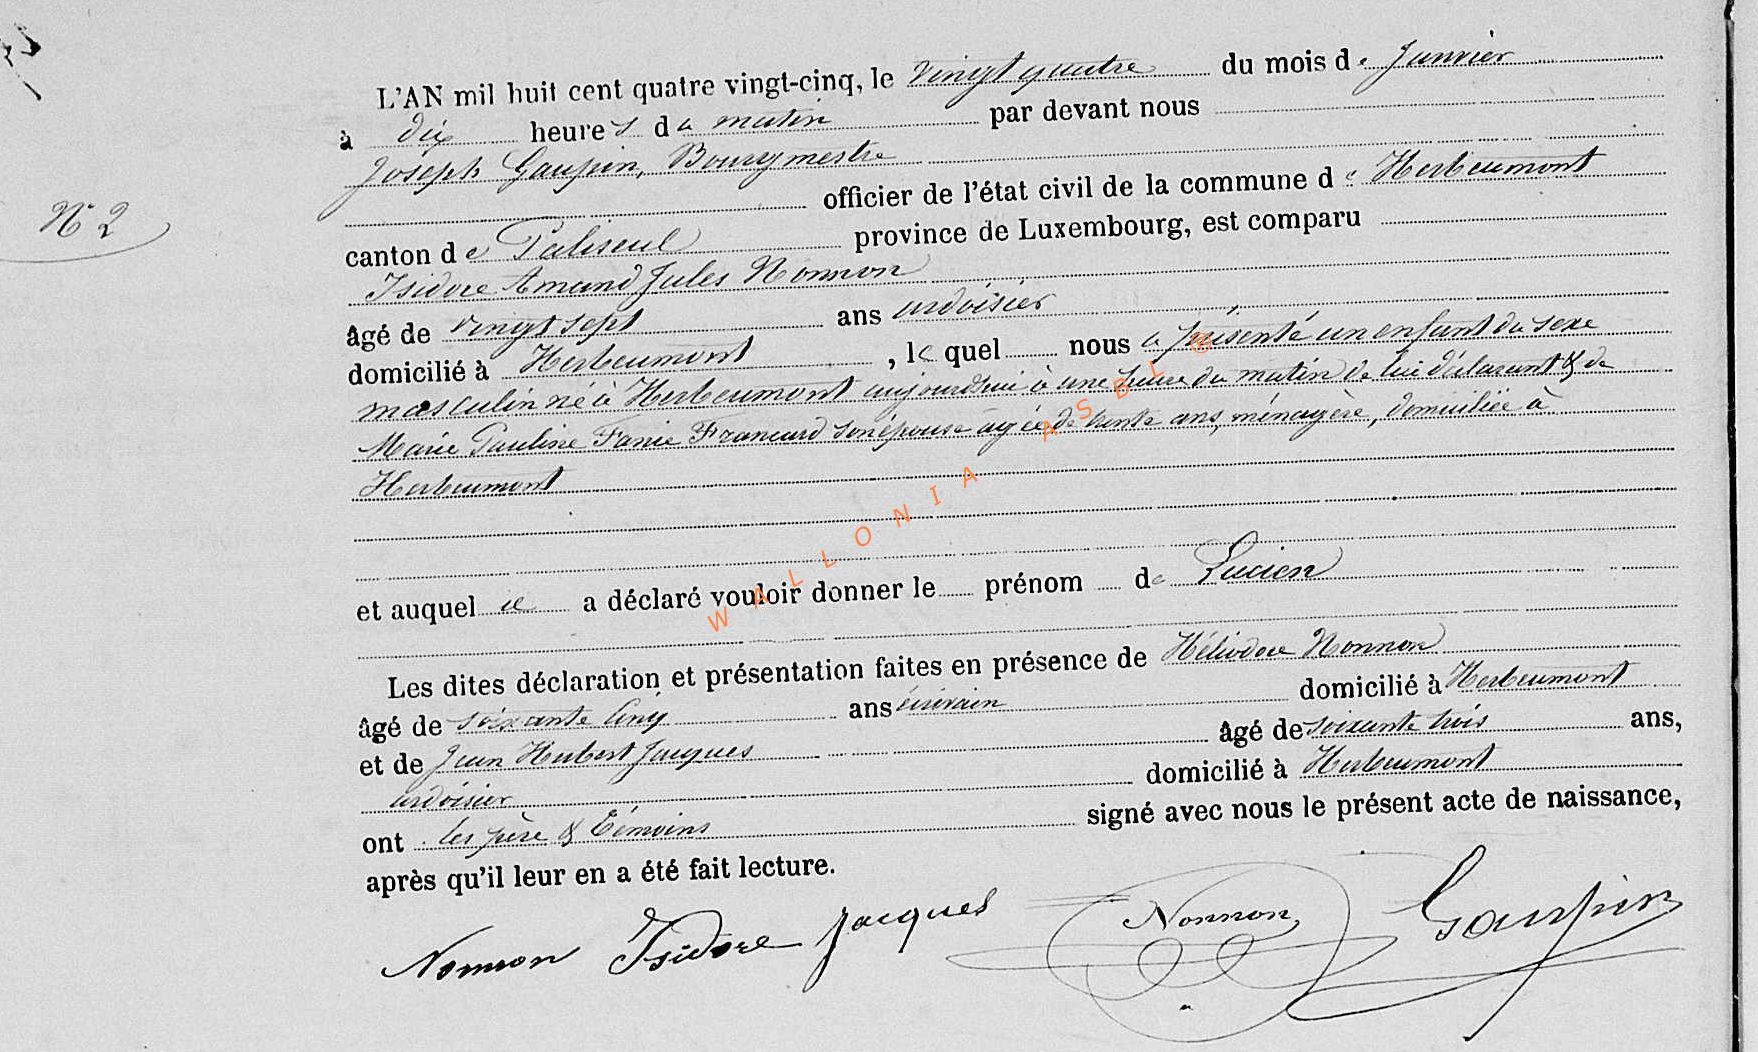 L'AN mil huit cent quatre vingt-cinq, le vingt quatre du mois de Janvier
à dix heures du matin par devant nous
Joseph Gaupin, Bourgmestre
officier de l'état civil de la commune de Herbeumont
N° 2
canton de Paliseul province de Luxembourg, est comparu
Isidore Amand Jules Nonnon
âgé de vingt sept ans ardoisier
domicilié à Herbeumont, lequel nous a présenté un enfant du sexe
masculin né à Herbeumont aujourd'hui à une heure du matin de lui déclarant & de
Marie Pauline Fanie Francard son épouse âgée de trente ans, ménagère, domiciliée à
Herbeumont
et auquel il a déclaré vouloir donner le prénom de Lucien
Les dites déclaration et présentation faites en présence de Héliodore Nonnon
âgé de soixante cinq ans écrivain domicilié à Herbeumont
et de Jean Hubert Jacques âgé de soixante trois ans,
ardoisier domicilié à Herbeumont
ont les père & témoins signé avec nous le présent acte de naissance,
après qu'il leur en a été fait lecture.
Nonnon Isidore Jacques Nonnon Gaupin
WALLONIA ASBL ©